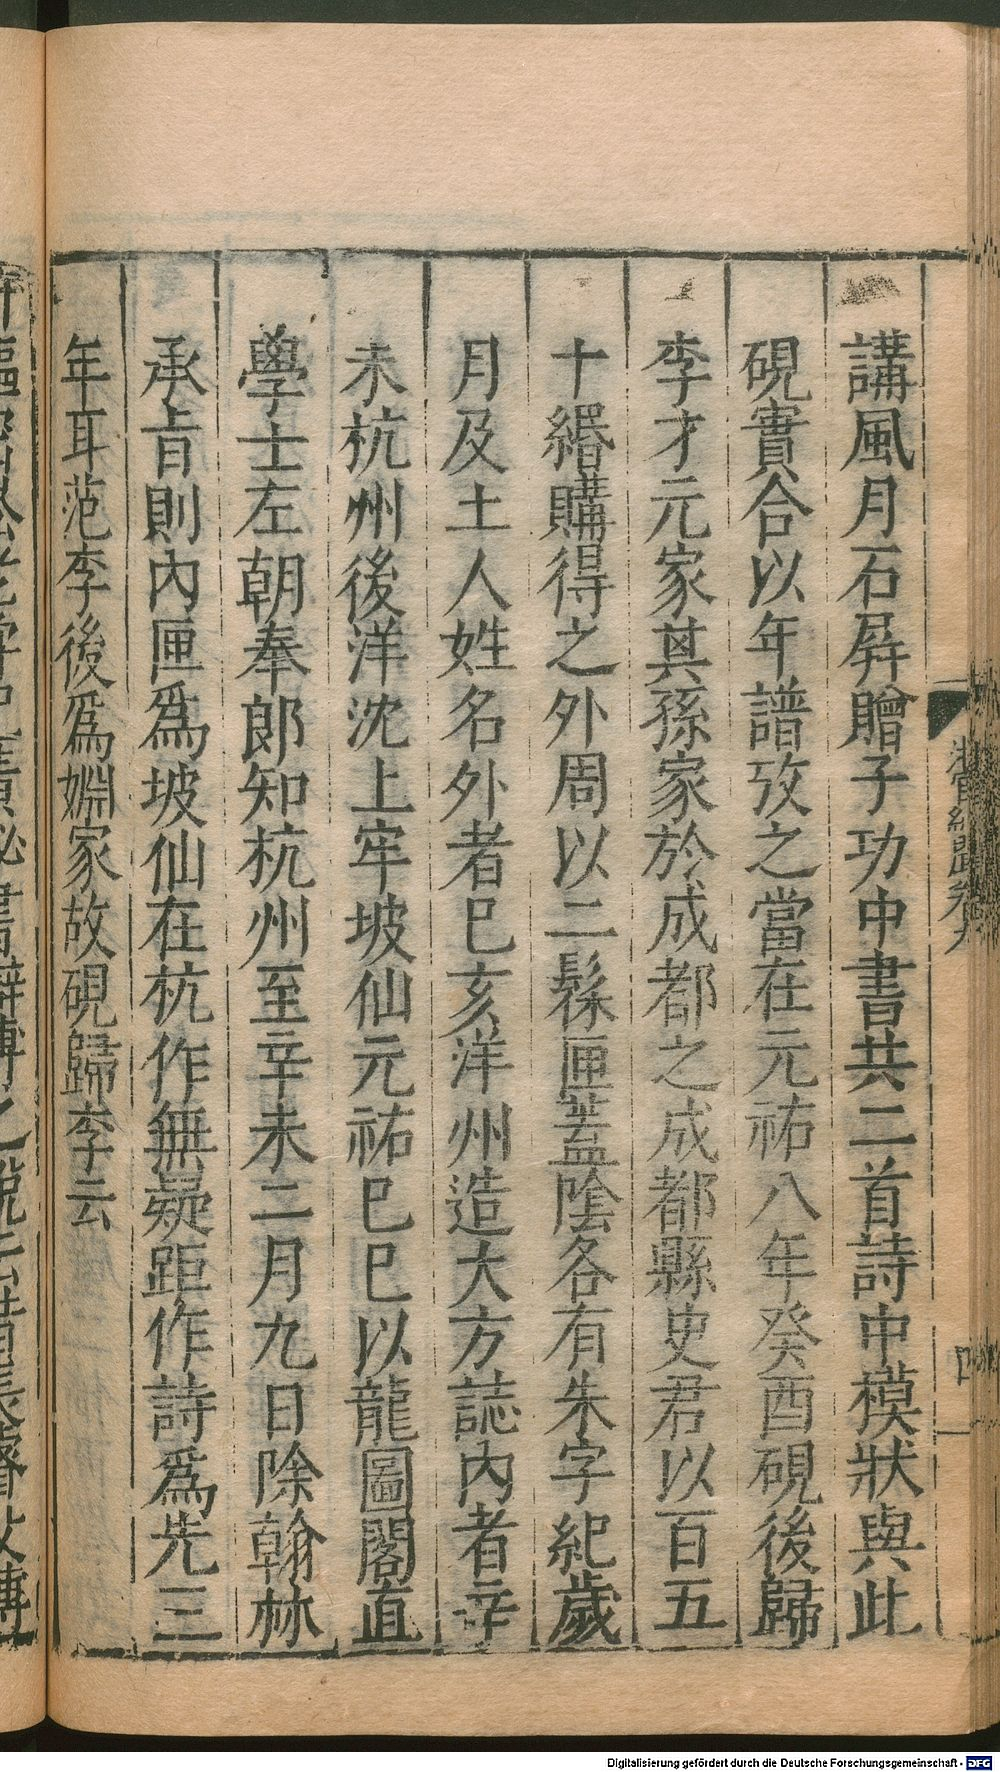 講風月石屏贈子功中書共二首詩中模狀與此
硯實合以年譜攷之當在元祐八年癸酉硯後歸
李才元家其孫家於成都之成都縣史君以百五
十緡購得之外周以二髹匣蓋陰各有朱字紀歲
月及土人姓名外者巳亥洋州造大方誌內者辛
未杭州後洋沈上牢坡仙元祐巳巳以龍圖閣直
學士左朝奉郎知杭州至辛未二月九日除翰林
承旨則內匣爲坡仙在杭作無疑距作詩爲先三
年耳范李後爲婣家故硯歸李云
Digitalisierung gefördert durch die Deutsche Forschungsgemeinschaft - DFG